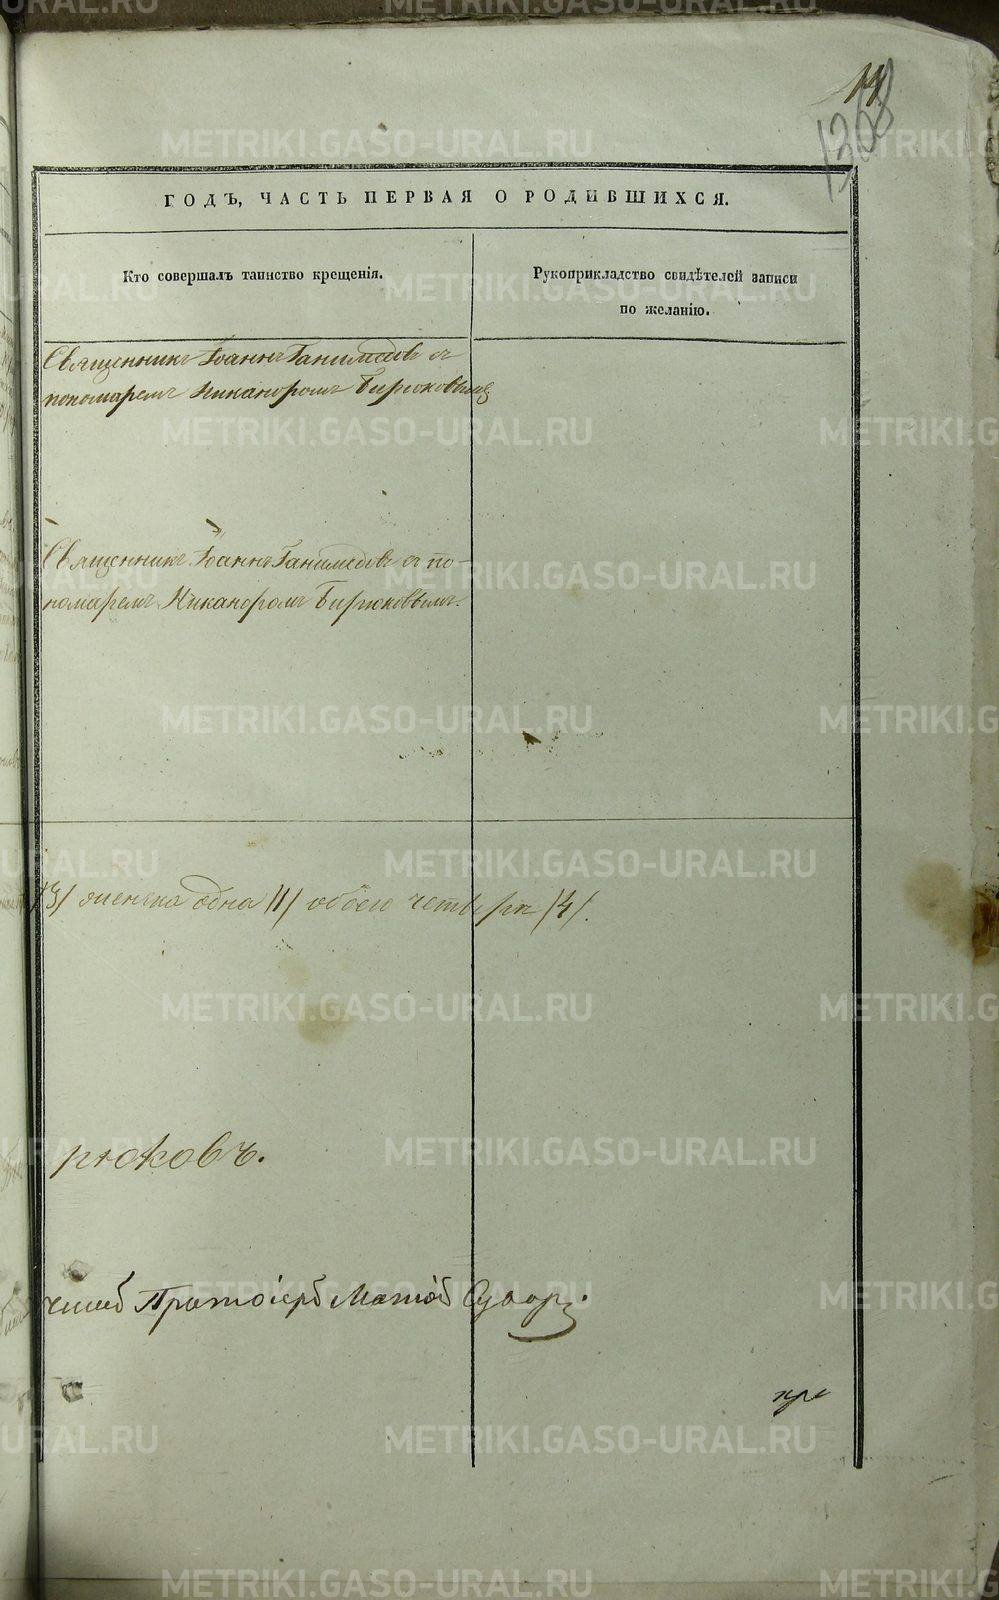 14
1368
ГОДЪ, ЧАСТЬ ПЕРВАЯ О РОДИВШИХСЯ.
Кто совершалъ таинство крещенія.
Рукоприкладство свидѣтелей записи
по желанію.
Священникъ Іоаннъ Ганимедовъ съ
пономаремъ Никаноромъ Бирюковымъ
Священникъ Іоаннъ Ганимедовъ съ по-
номаремъ Никаноромъ Бирюковымъ.
/3/ женска одна /1/ обоего четыре /4/.
рюковъ.
Протоіерѣ
METRIKI.GASO-URAL.RU